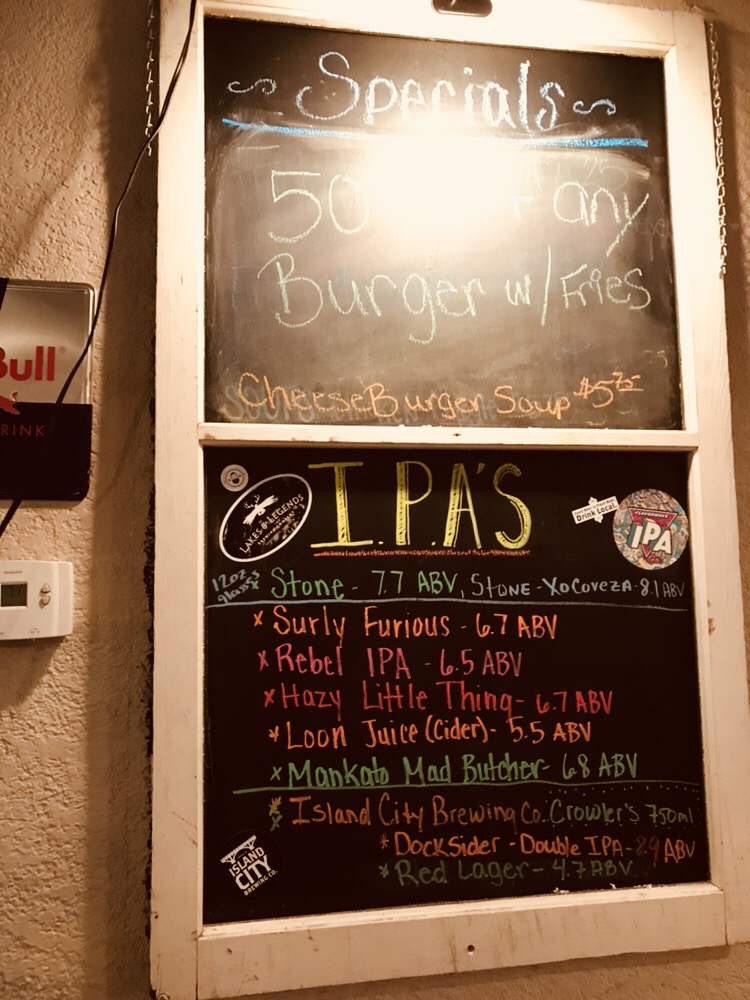 Specials
50 any
Burger w/ Fries
CheeseBurger Soup $5.75
Bull
RINK
LAKES & LEGENDS
I.P.A'S
Drink Local.
IPA
12oz glass
* Stone - 7.7 ABV, Stone - XoCoveza - 8.1 ABV
* Surly Furious - 6.7 ABV
x Rebel IPA - 6.5 ABV
* Hazy Little Thing - 6.7 ABV
* Loon Juice (Cider) - 5.5 ABV
x Mankato Mad Butcher - 6.8 ABV
* Island City Brewing Co. Crowler's 750ml
* DockSider - Double IPA - 8.9 ABV
* Red Lager - 4.7 ABV
ISLAND
CITY
BREWING CO.